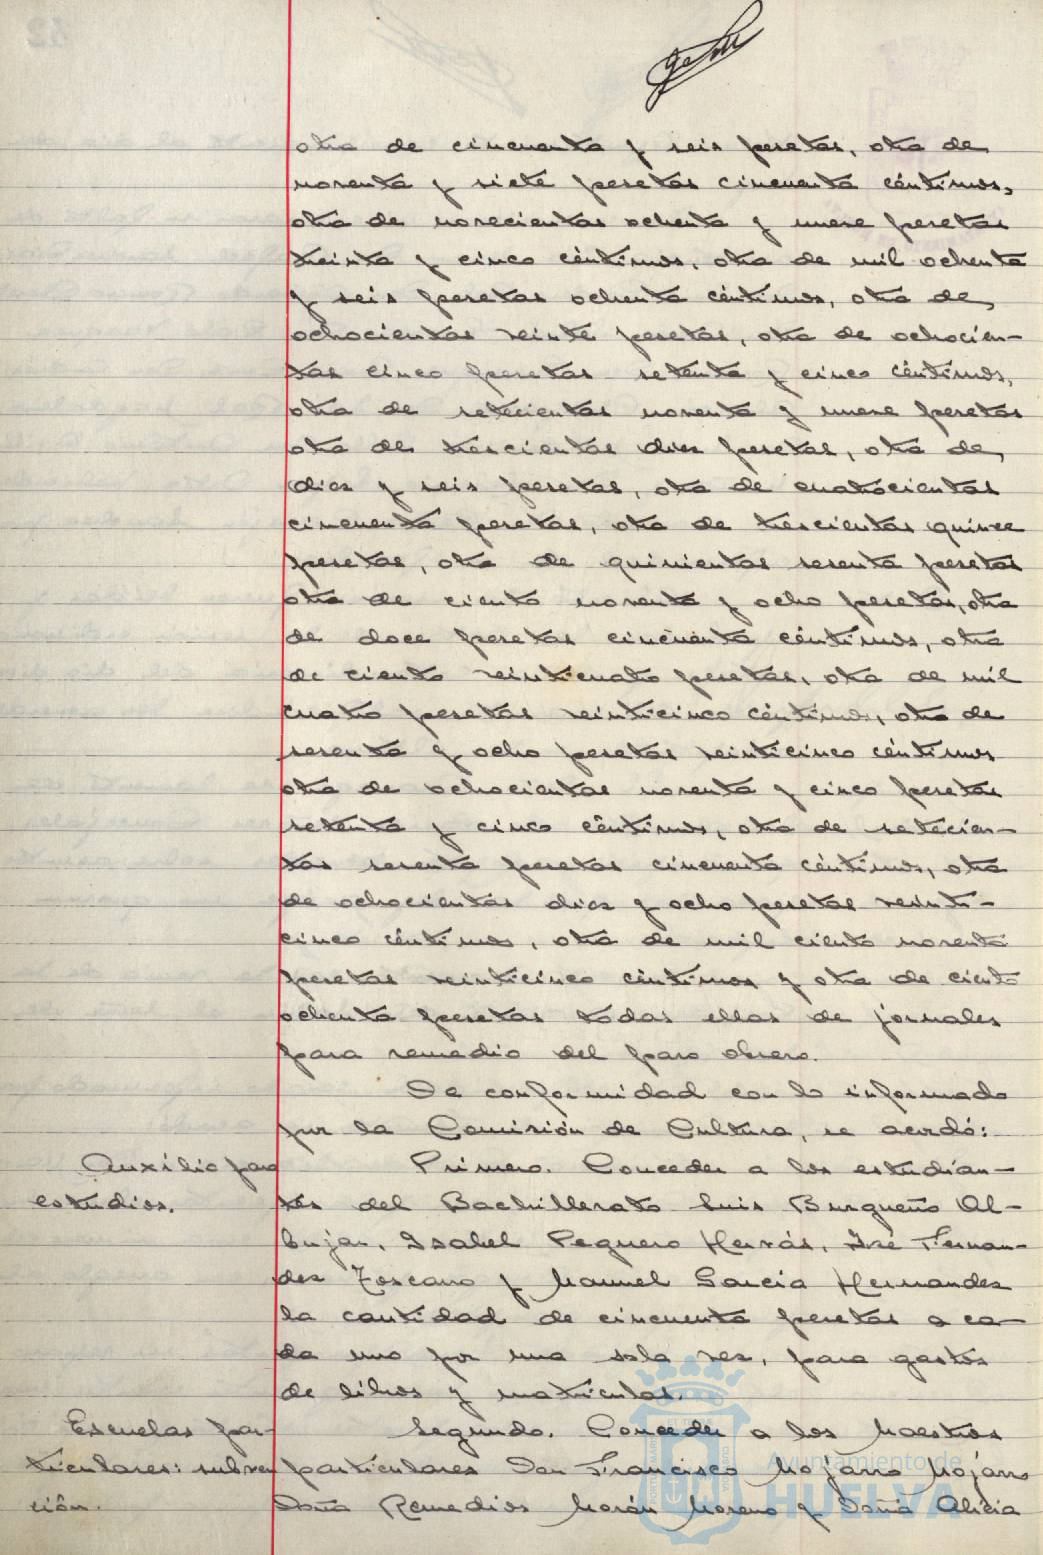 otra de cincuenta y seis pesetas, otra de
noventa y siete pesetas cincuenta céntimos,
otra de novecientas ochenta y nueve pesetas
treinta y cinco céntimos, otra de mil ochenta
y seis pesetas ochenta céntimos, otra de
ochocientas veinte pesetas, otra de ochocien-
tas cinco pesetas setenta y cinco céntimos,
otra de setecientas noventa y nueve pesetas
otra de trescientas diez pesetas, otra de
diez y seis pesetas, otra de cuatrocientas
cincuenta pesetas, otra de trescientas quince
pesetas, otra de quinientas sesenta pesetas
otra de ciento noventa y ocho pesetas, otra
de doce pesetas cincuenta céntimos, otra
de ciento veinticuatro pesetas, otra de mil
cuatro pesetas veinticinco céntimos, otra de
sesenta y ocho pesetas veinticinco céntimos
otra de ochocientas noventa y cinco pesetas
setenta y cinco céntimos, otra de setecien-
tas sesenta pesetas cincuenta céntimos, otra
de ochocientas diez y ocho pesetas veinti-
cinco céntimos, otra de mil ciento noventa
pesetas veinticinco céntimos y otra de ciento
ochenta pesetas todas ellas de jornales
para remedio del paro obrero.
De conformidad con lo informado
por la Comisión de Cultura, se acordó:
Auxilio para
estudios.
Primero. Conceder a los estudian-
tes del Bachillerato Luis Burgueño Al-
bujar, Isabel Peguero Hervás, José Fernan-
dez Toscano y Manuel Garcia Hernandez
la cantidad de cincuenta pesetas a ca-
da uno por una sola vez, para gastos
de libros y matriculas.
Escuelas par-
ticulares: subven
ción.
Segundo. Conceder a los Maestros
particulares Don Francisco Mojarro Mojarro
Doña Remedios Morán Moreno y Doña Alicia
Ayuntamiento de
HUELVA